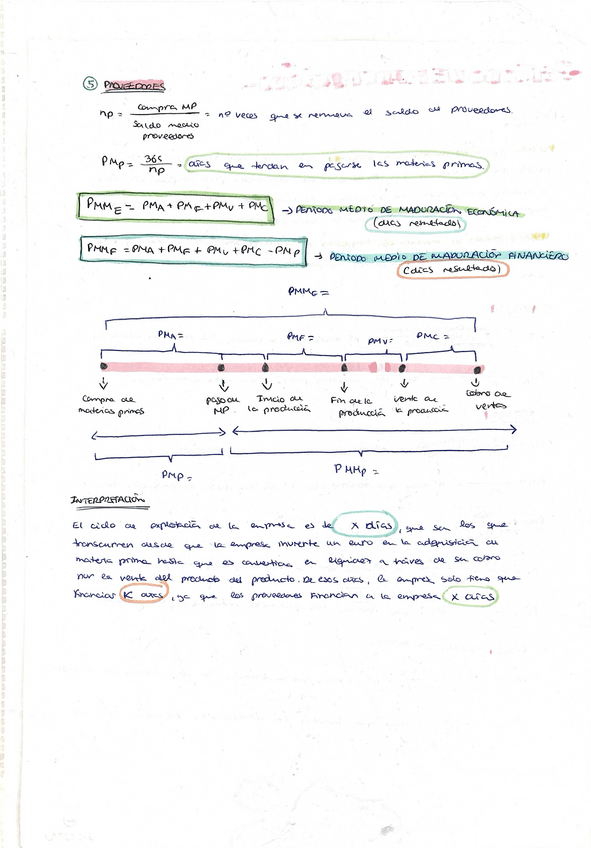 ⑤ PROVEEDORES
np = compra MP / saldo medio proveedores = nº veces que se renueva el saldo de proveedores.
PMp = 365 / np = días que tardan en pagarse las materias primas.
PMM_E = PMA + PMF + PMV + PMC → PERIODO MEDIO DE MADURACIÓN ECONÓMICA
(días resultado)
PMMF = PMA + PMF + PMV + PMC - PMP → PERIODO MEDIO DE MADURACIÓN FINANCIERO
(días resultado)
PMM_E =
PMA = PMF = PMV = PMC =
Compra de materias primas
pago de MP
Inicio de la producción
Fin de la producción
venta de la producción
Cobro de ventas
PMP = PMMP =
INTERPRETACIÓN
El ciclo de explotación de la empresa es de X días, que son los que
transcurren desde que la empresa invierte un euro en la adquisición de
materia prima hasta que es convertida en liquidez a través de su cobro
por la venta del producto del producto. De esos días, la empresa solo tiene que
financiar K días, ya que los proveedores financian a la empresa X días